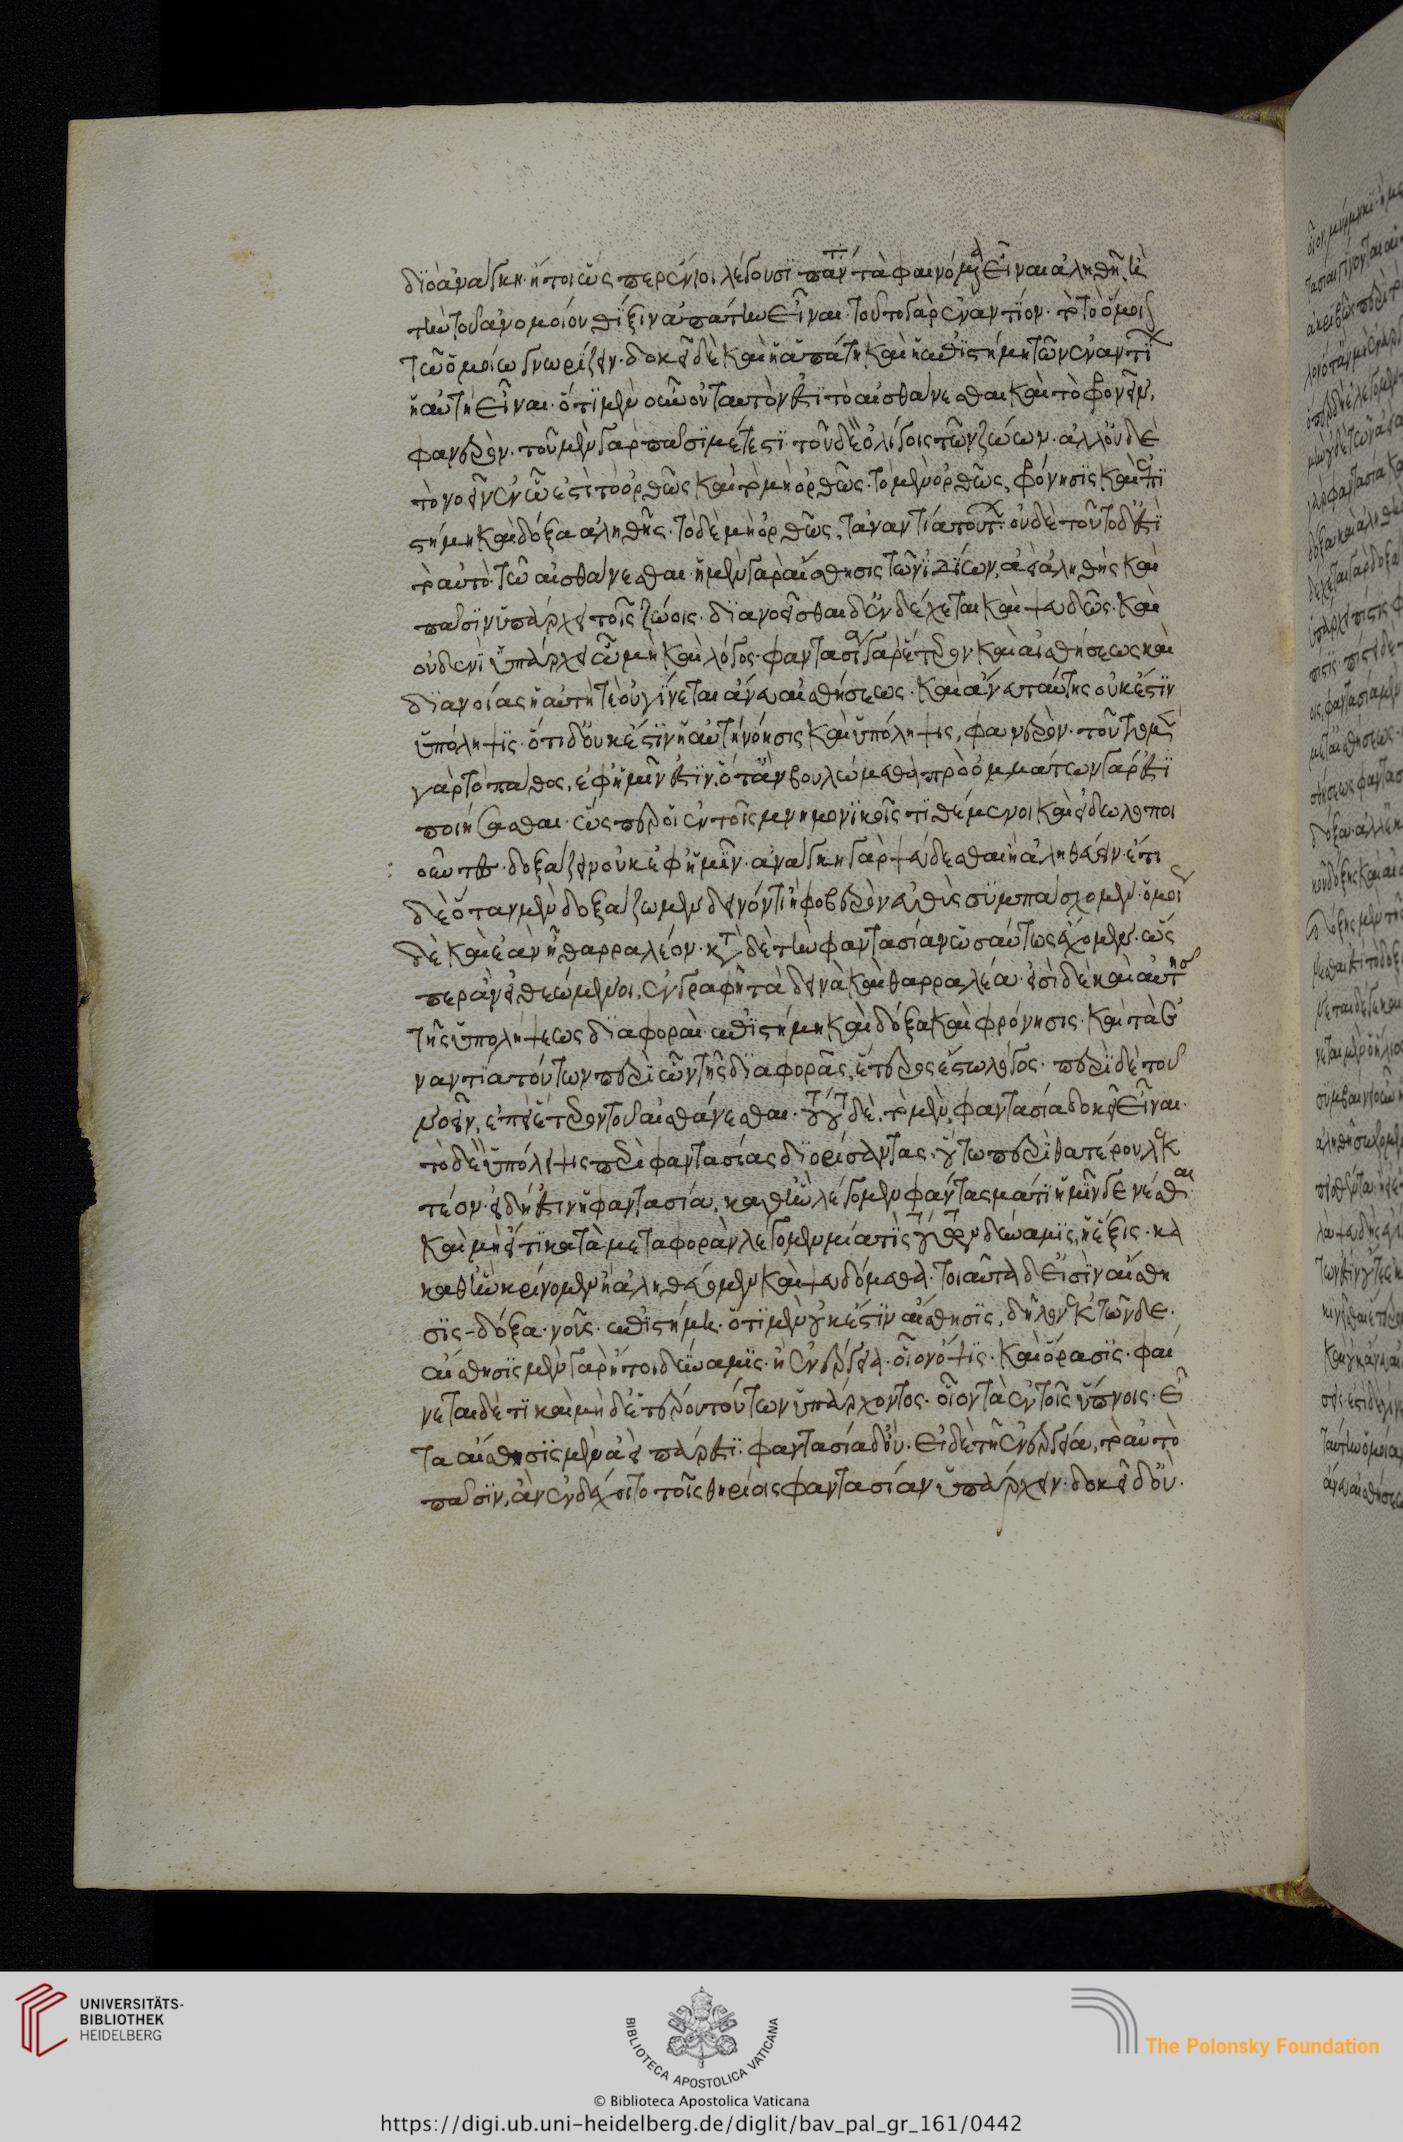 διὸ ἀνάγκη· ἤτοι ὥσπερ ἔνιοι λέγουσι πάντα τὰ φαινόμενα εἶναι ἀληθῆ. ἢ
τὴν τοῦ ἀνομοίου θίξιν ἀπάτην εἶναι. τοῦτο γὰρ ἐναντίον· τῶ τὸ ὅμοιον
τῶ ὁμοίω γνωρίζειν. δοκεῖ δὲ καὶ ἡ ἀπάτη καὶ ἡ ἐπιστήμη τῶν ἐναντίων
ἡ αὐτὴ εἶναι. ὅτι μὲν οὖν οὐ ταυτόν ἐστι τὸ αἰσθάνεσθαι καὶ τὸ φρονεῖν,
φανερόν. τοῦ μὲν γὰρ πᾶσι μέτεστι. τοῦ δὲ ὀλίγοις τῶν ζώων. ἀλλ' οὐδὲ
τὸ νοεῖν ἐν ὧ ἐστὶ τὸ ὀρθῶς καὶ τὸ μὴ ὀρθῶς. τὸ μὲν ὀρθῶς, φρόνησις καὶ ἐπι
στήμη καὶ δόξα ἀληθής. τὸ δὲ μὴ ὀρθῶς, τἀναντία τούτων. οὐδὲ τοῦτο δ' ἐστὶ
τὸ αὐτὸ τῶ αἰσθάνεσθαι. ἡ μὲν γὰρ αἴσθησις τῶν ἰδίων, ἀεὶ ἀληθὴς καὶ
πᾶσιν ὑπάρχει τοῖς ζώοις. διανοεῖσθαι δ' ἐνδέχεται καὶ ψευδῶς. καὶ
οὐδενὶ ὑπάρχει ὧ μὴ καὶ λόγος. φαντασία γὰρ ἕτερον καὶ αἰσθήσεως καὶ
διανοίας· ἡ αὐτή τε οὐ γίνεται ἄνευ αἰσθήσεως. καὶ ἄνευ ταύτης οὐκ ἔστιν
ὑπόληψις. ὅτι δ' οὐκ ἔστιν ἡ αὐτὴ νόησις καὶ ὑπόληψις, φανερόν. τοῦτο μὲν
γὰρ τὸ πάθος, ἐφ' ἡμῖν ἐστιν, ὅταν βουλώμεθα· πρὸ ὀμμάτων γάρ ἐστι
ποιήσασθαι. ὥσπερ οἱ ἐν τοῖς μνημονικοῖς τιθέμενοι καὶ εἰδωλοποι
οῦντες. δοξάζειν οὐκ ἐφ' ἡμῖν. ἀνάγκη γὰρ ψεύδεσθαι ἢ ἀληθεύειν. ἔτι
δὲ ὅταν μὲν δοξάζωμεν δεινόν τι ἢ φοβερὸν εὐθὺς συμπάσχομεν. ὁμοίως
δὲ κἂν ἐὰν ἦ θαρραλέον. κατὰ δὲ τὴν φαντασίαν ὡσαύτως ἔχομεν. ὥς
περ ἂν εἰ θεώμενοι, ἐν γραφῆ τὰ δεινὰ καὶ θαρραλέα. εἰσὶ δὲ καὶ αὐτῆς
τῆς ὑπολήψεως διαφοραὶ· ἐπιστήμη καὶ δόξα καὶ φρόνησις. καὶ τὰ ἐ
ναντία τούτων περὶ ὧν τῆς διαφορᾶς, ἕτερος ἔστω λόγος. περὶ δὲ τοῦ
νοεῖν, ἐπεὶ ἕτερον τοῦ αἰσθάνεσθαι. τούτου δὲ, τὸ μὲν, φαντασία δοκεῖ εἶναι.
τὸ δὲ ὑπόληψις περὶ φαντασίας διορίσαντας. οὕτω περὶ θατέρου λεκ
τέον. εἰ δή ἐστιν ἡ φαντασία, καθ' ἣν λέγομεν φάντασμά τι ἡμῖν γενέσθαι.
καὶ μὴ εἴ τι κατὰ μεταφορὰν λέγομεν μία τις τούτων δύναμις, ἢ ἕξις. κα
καθ' ἣν κρίνομεν ἢ ἀληθεύομεν καὶ ψευδόμεθα. τοιαῦται δ' εἰσὶν αἴσθη
σις· δόξα· νοῦς. ἐπιστήμη. ὅτι μὲν οὐκ ἔστιν αἴσθησις, δῆλον ἐκ τῶνδε.
αἴσθησις μὲν γὰρ ἤτοι δύναμις. ἢ ἐνέργεια. οἷον ὄψις. καὶ ὅρασις. φαί
νεται δέ τι καὶ μὴ δετέρου τούτων ὑπάρχοντος. οἷον τὰ ἐν τοῖς ὕπνοις. εἶ
τα αἴσθησις μὲν ἀεὶ πάρεστι. φαντασία δ' οὔ. εἰ δὲ τῆ ἐνεργεία, τὸ αὐτὸ
πᾶσιν, ἂν ἐνδέχοιτο τοῖς θηρίοις φαντασίαν ὑπάρχειν. δοκεῖ δ' οὔ.
UNIVERSITÄTS-
BIBLIOTHEK
HEIDELBERG
BIBLIOTECA APOSTOLICA VATICANA
The Polonsky Foundation
© Biblioteca Apostolica Vaticana
https://digi.ub.uni-heidelberg.de/diglit/bav_pal_gr_161/0442